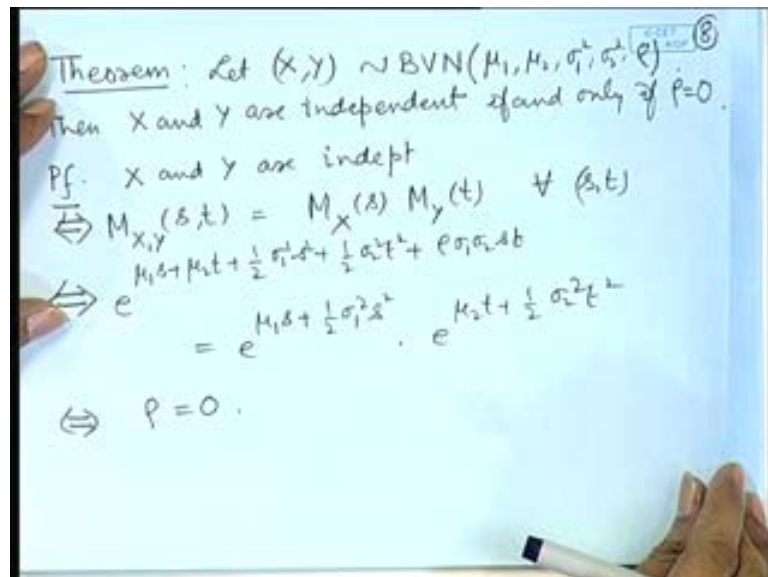 Theorem: Let (X,Y) ~ BVN(μ₁, μ₂, σ₁², σ₂², ρ) ⑧
Then X and Y are independent if and only if ρ=0.
Pf. X and Y are indept
⇔ M_{X,Y}(s,t) = M_X(s) M_Y(t) ∀ (s,t)
⇔ e^{μ₁s+μ₂t+½σ₁²s²+½σ₂²t²+ρσ₁σ₂st}
= e^{μ₁s+½σ₁²s²} . e^{μ₂t+½σ₂²t²}
⇔ ρ=0.